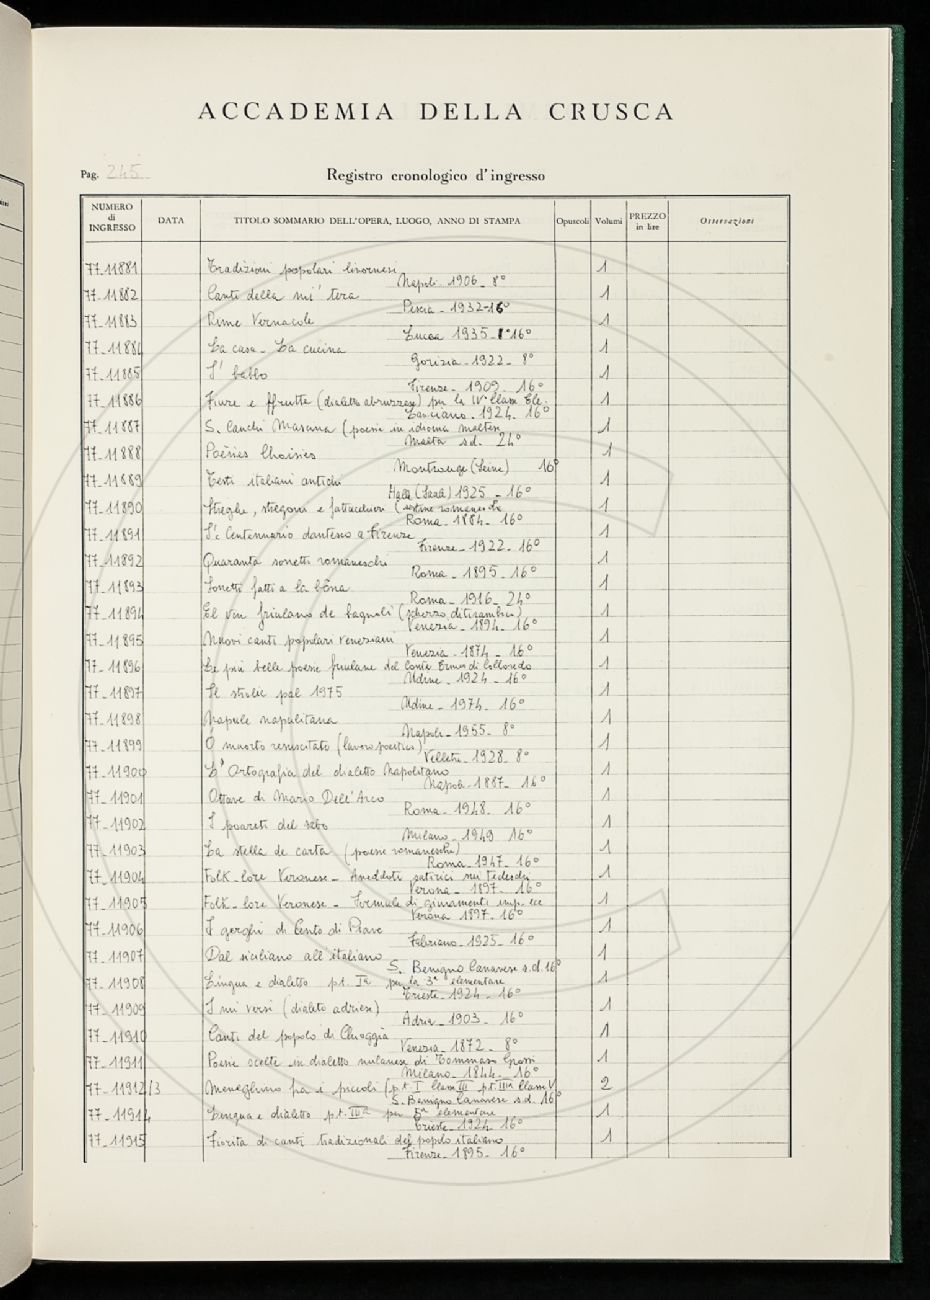 ACCADEMIA DELLA CRUSCA
Pag. 245
Registro cronologico d'ingresso
NUMERO di INGRESSO DATA TITOLO SOMMARIO DELL'OPERA, LUOGO, ANNO DI STAMPA Opuscoli Volumi PREZZO in lire Osservazioni
77-11881 Tradizioni popolari livornesi 1
Napoli 1906 - 8°
77-11882 Canti della mi' tera 1
Pescia - 1932-16°
77-11883 Rime Vernacole 1
Lucca 1935- 16°
77-11884 La casa - La cucina 1
Gorizia - 1922 - 8°
77-11885 I' babbo 1
Firenze - 1909 - 16°
77-11886 Fiure e ffrutte (dialetto abruzzese) per la IVª Classe Ele. 1
Lanciano - 1924 - 16°
77-11887 S. Masuna (poesie in idioma maltese 1
Malta s.d. 24°
77-11888 Poésies Choisies 1
Montrouge (Seine) 16°
77-11889 Testi italiani antichi 1
Halle (Saale) 1925 - 16°
77-11890 Streghe, stregoni e fattucchieri (sestine romanesche 1
Roma - 1884 - 16°
77-11891 Centennario dantesco a Firenze 1
Firenze - 1922 - 16°
77-11892 Quaranta sonetti romaneschi 1
Roma - 1895 - 16°
77-11893 Sonetti fatti a la bôna 1
Roma - 1916 - 24°
77-11894 El vin friulano de Bagnoli (scherzo ditirambico) 1
Venezia - 1894 - 16°
77-11895 Nuovi canti popolari veneziani 1
Venezia - 1874 - 16°
77-11896 Le più belle poesie friulane del conte Ermes di Colloredo 1
Udine - 1924 - 16°
77-11897 Il strolic pal 1975 1
Udine - 1974 - 16°
77-11898 Napule napulitana 1
Napoli - 1955 - 8°
77-11899 O muorto resuscitato (lavoro poetico) 1
Velletri - 1928 - 8°
77-11900 L'Ortografia del dialetto Napolitano 1
Napoli - 1887 - 16°
77-11901 Ottave di Mario Dell'Arco 1
Roma - 1948 - 16°
77-11902 I poareti del sebo 1
Milano - 1949 16°
77-11903 La stella de carta (poesie romanesche) 1
Roma - 1947 - 16°
77-11904 Folk-lore Veronese - Aneddoti satirici sui tedeschi 1
Verona - 1897 - 16°
77-11905 Folk-lore Veronese - Formule di giuramenti imp. ecc 1
Verona 1897 - 16°
77-11906 I gerghi di Cento di Pieve 1
Fabriano - 1925 - 16°
77-11907 Dal siciliano all'italiano 1
S. Benigno Canavese s.d. 16°
77-11908 Lingua e dialetto pt. Iª per la 3ª elementare 1
Trieste - 1924 - 16°
77-11909 I mii versi (dialeto adriese) 1
Adria - 1903 - 16°
77-11910 Canti del popolo di Chioggia 1
Venezia - 1872 - 8°
77-11911 Poesie scelte in dialetto milanese di Tommaso Grossi 1
Milano - 1844 - 16°
77-11912/3 Meneghino fra i piccoli (p.t. I Classe III p.t. IIIª Classe V 2
S. Benigno Canavese s.d. 16°
77-11914 Lingua e dialetto p.t. IIIª per 5ª elementare 1
Trieste - 1924 16°
77-11915 Fiorita di canti tradizionali del popolo italiano 1
Firenze - 1895 - 16°